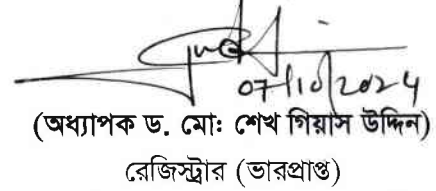 07/10/2024
(অধ্যাপক ড. মো: শেখ গিয়াস উদ্দিন)
রেজিস্ট্রার (ভারপ্রাপ্ত)